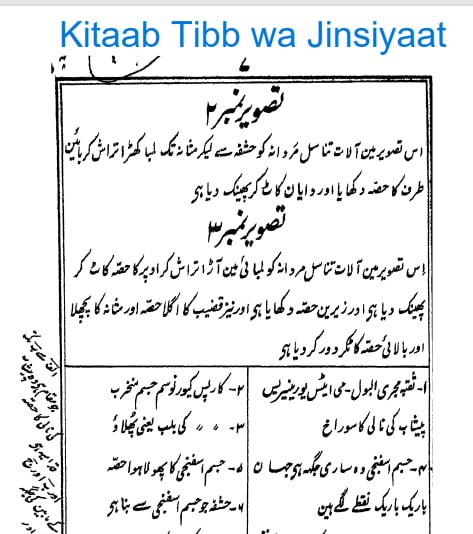 Kitaab Tibb wa Jinsiyaat
تصویر نمبر ۲
اس تصویر مین آلات تناسل مردانہ کو حشفہ سے لیکر مثانہ تک لمبا کھڑا تراش کر بائین
طرف کا حصّہ دکھایا اور دایان کاٹ کر پھینک دیا ہی
تصویر نمبر ۳
اِس تصویر مین آلات تناسل مردانہ کو لمبائی مین آڑا تراش کر اوپر کا حصّہ کاٹ کر
پھینک دیا ہی اور زیرین حصّہ دکھایا ہی اور نیز قضیب کا اگلا حصّہ اور مثانہ کا پچھلا
اور بالائی حصّہ کاٹکر دور کر دیا ہی
۱- ثقبہ مجری البول - می ایٹس یورینیریس
پیشاب کی نالی کا سوراخ
۲- کارپس کیورنوسم جسم منخرب
۳- " " کی بلب یعنی پھُلاؤ
۴- جسم اسفنجی وہ ساری جگہ ہی جہان
باریک باریک نقطے لگے ہین
۵- جسم اسفنجی کا پھولا ہوا حصّہ
۶- حشفہ جو جسم اسفنجی سے بنا ہی